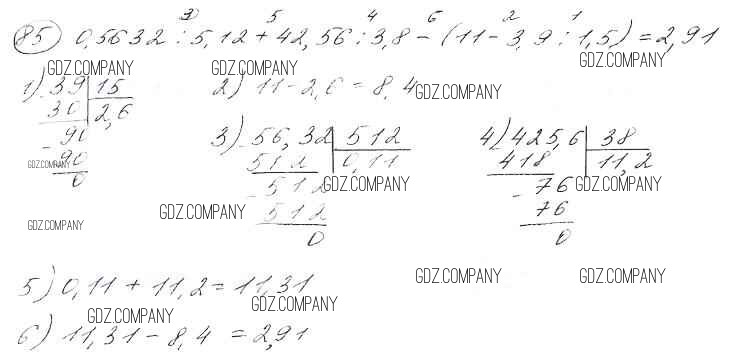 3 5 4 6 2 1
85 0,5632 : 5,12 + 42,56 : 3,8 - (11 - 3,9 : 1,5) = 2,91
GDZ.COMPANY GDZ.COMPANY GDZ.COMPANY
1) 39 | 15 2) 11 - 2,6 = 8,4 GDZ.COMPANY
30 2,6
- 90 3) 56,32 | 512 4) 425,6 | 38
90 512 0,11 418 11,2
GDZ.COMPANY
0 - 512 GDZ.COMPANY - 76 GDZ.COMPANY
512 76
GDZ.COMPANY GDZ.COMPANY
0 0
5) 0,11 + 11,2 = 11,31 GDZ.COMPANY GDZ.COMPANY
GDZ.COMPANY GDZ.COMPANY
6) 11,31 - 8,4 = 2,91